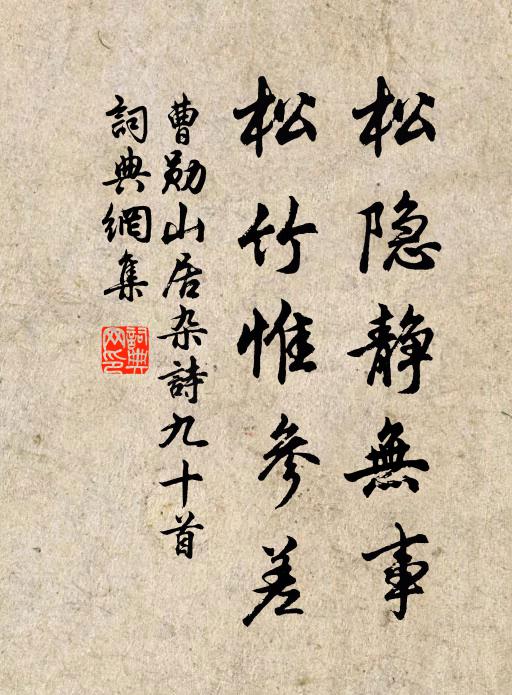 松隐静無事
松竹惟参差
曹勋山居杂詩九十首
詞典網集
詞典网印